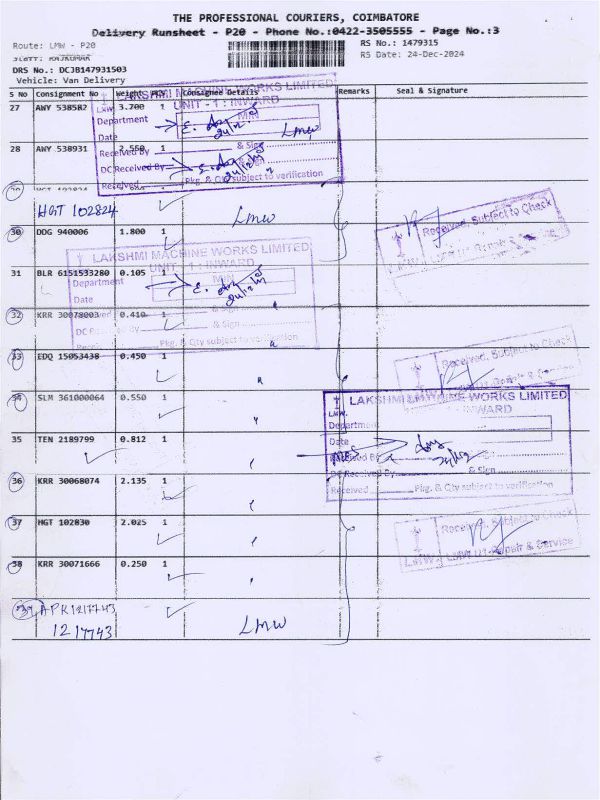 THE PROFESSIONAL COURIERS, COIMBATORE
Delivery Runsheet - P20 - Phone No.:0422-3505555 - Page No.:3
Route: LMW - P20
RS No.: 1479315
RS Date: 24-Dec-2024
DRS No.: DCJB147931503
Vehicle: Van Delivery
S No Consignment No Weight PCV Consignee Details Remarks Seal & Signature
LAKSHMI MACHINE WORKS LIMITED
UNIT - 1 : INWARD
27 AWY 538582 3.700 1
Department
MIN
Date
LMW
28 AWY 538931 2.550 1
Received By & Sign
DC Received By
Received Pkg. & Qty subject to verification
HGT 102824 LMW
Received, Subject to Check
30 DDG 940006 1.800 1
LAKSHMI MACHINE WORKS LIMITED
UNIT - 1 : INWARD
31 BLR 6151533280 0.105 1
Department
MIN
Date
32 KRR 30078003 0.410 1
& Sign
DC Received By
Pkg. & Qty subject to verification
33 EDQ 15053438 0.450 1
Received, Subject to Check
34 SLM 361000064 0.550 1
LAKSHMI MACHINE WORKS LIMITED
INWARD
LMW
Department
35 TEN 2189799 0.812 1
Date
Received By
DC Received By & Sign
36 KRR 30068074 2.135 1
Received Pkg. & Qty subject to verification
37 HGT 102830 2.025 1
Received, Subject to Check
LMW U1-Repair & Service
38 KRR 30071666 0.250 1
39 APK1217743
1217743 LMW